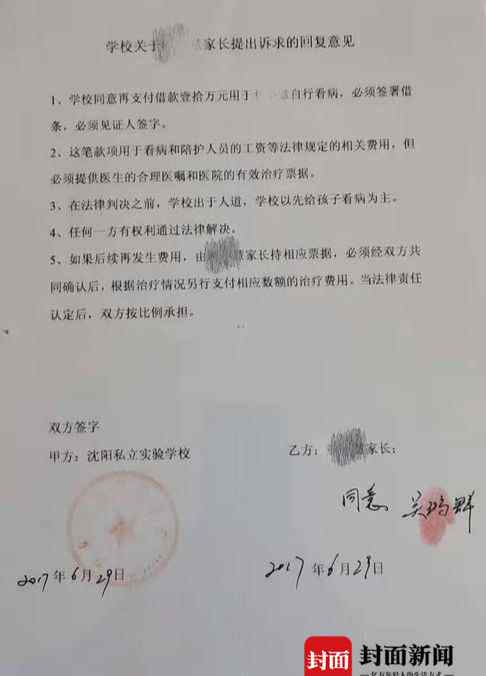 学校关于 家长提出诉求的回复意见
1、学校同意再支付借款壹拾万元用于 自行看病，必须签署借
条，必须见证人签字。
2、这笔款项用于看病和陪护人员的工资等法律规定的相关费用，但
必须提供医生的合理医嘱和医院的有效治疗票据。
3、在法律判决之前，学校出于人道，学校以先给孩子看病为主。
4、任何一方有权利通过法律解决。
5、如果后续再发生费用，由 家长持相应票据，必须经双方共
同确认后，根据治疗情况另行支付相应数额的治疗费用。当法律责任
认定后，双方按比例承担。
双方签字
甲方：沈阳私立实验学校
乙方： 家长：
同意
2017年6月29日
2017年6月29日
封面 封面新闻